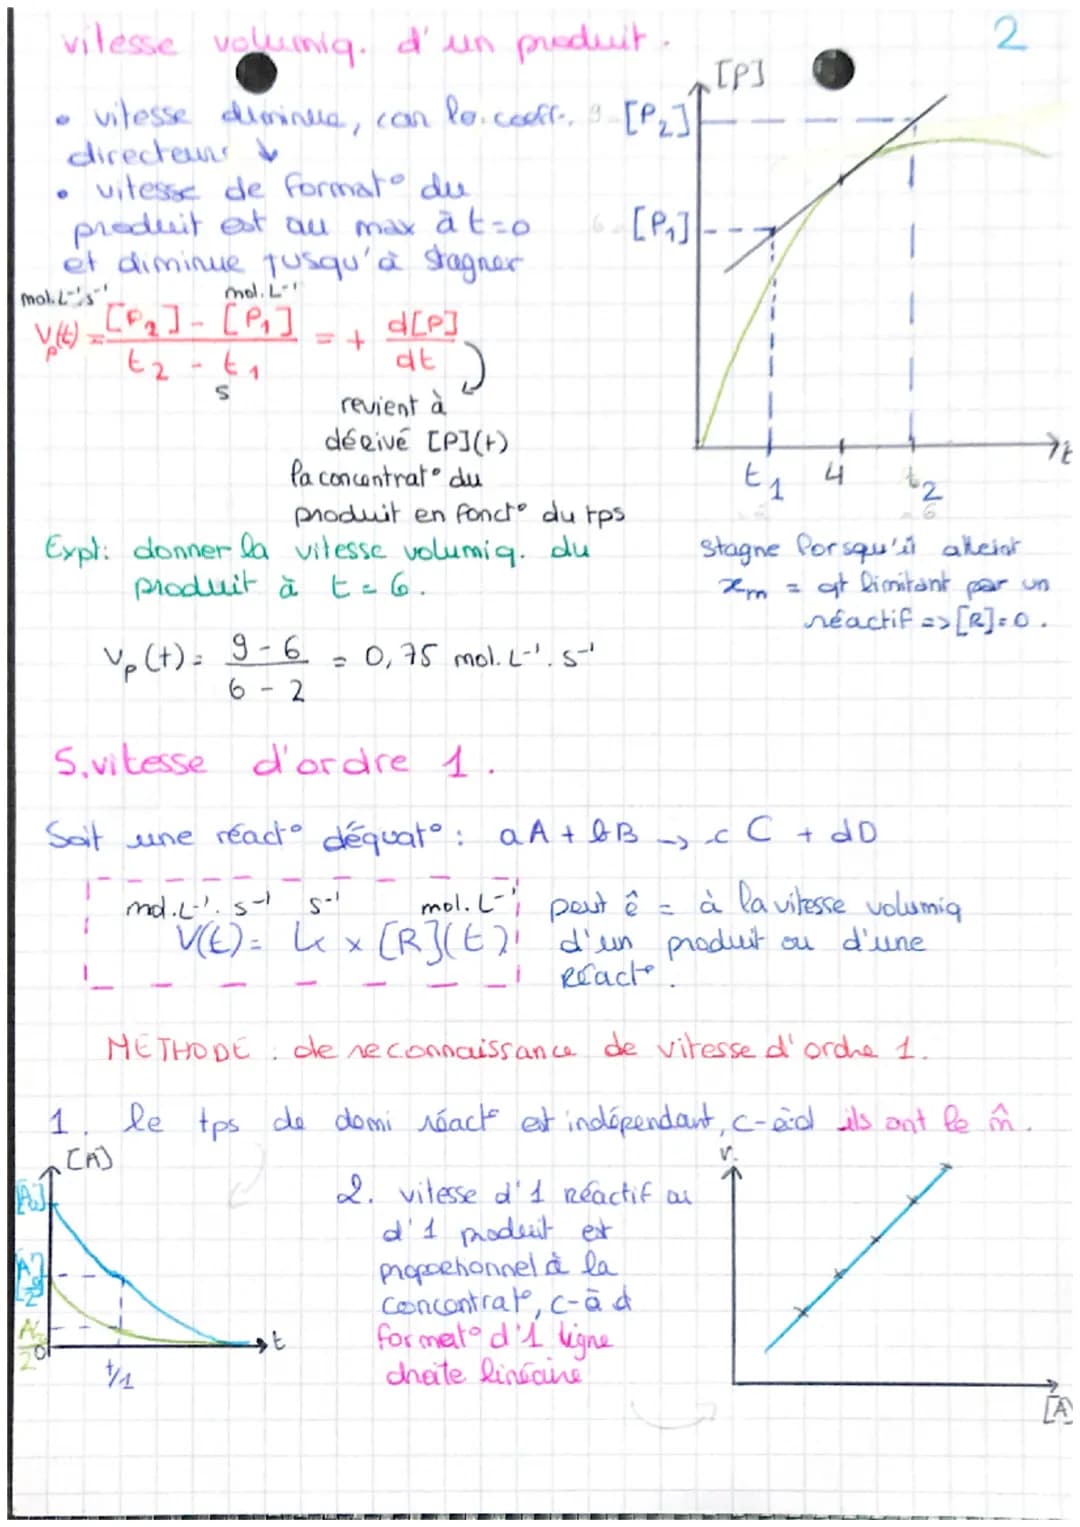 vitesse volumiq. d'un produit.
2
• vitesse diminue, car le coeff.
directeur ↓
• vitesse de format° du
produit est au max à t=0
et diminue jusqu'à stagner
mol.L⁻¹s⁻¹ mol.L⁻¹
Vp(t) = [P₂] - [P₁] / t₂ - t₁ = + d[P] / dt
s
revient à
dérivé [P](t)
la concentrat° du
produit en fonct° du tps
[P]
9 [P₂]
6 [P₁]
t₁ 4 t₂ t
6
stagne lorsqu'il atteint
xm = qt limitant par un
réactif => [R]=0.
Expl: donner la vitesse volumiq. du
produit à t = 6.
Vp(t) = 9-6 / 6-2 = 0,75 mol.L⁻¹.s⁻¹
5.vitesse d'ordre 1.
Soit une réact° déquat° : aA + bB → cC + dD
mol.L⁻¹.s⁻¹ s⁻¹ mol.L⁻¹
V(t) = k x [R](t)
peut ê = à la vitesse volumiq
d'un produit ou d'une
réact°.
METHODE : de reconnaissance de vitesse d'ordre 1.
1. le tps de demi réact° est indépendant, c-àd ils ont le m̂.
[A]
[A₀]
[A₀]/2
A'₀/2
0
t/1
t
2. vitesse d'1 réactif ou
d'1 produit est
proportionnel à la
concentrat°, c-à d
format° d'1 ligne
droite linéaire
v.
[A]